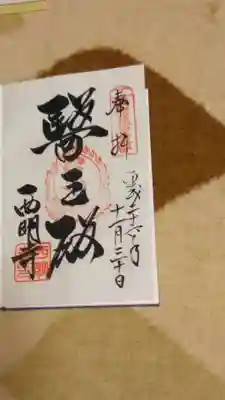 奉拝
平成二十六年
十一月三十日
醫王殿
西明寺